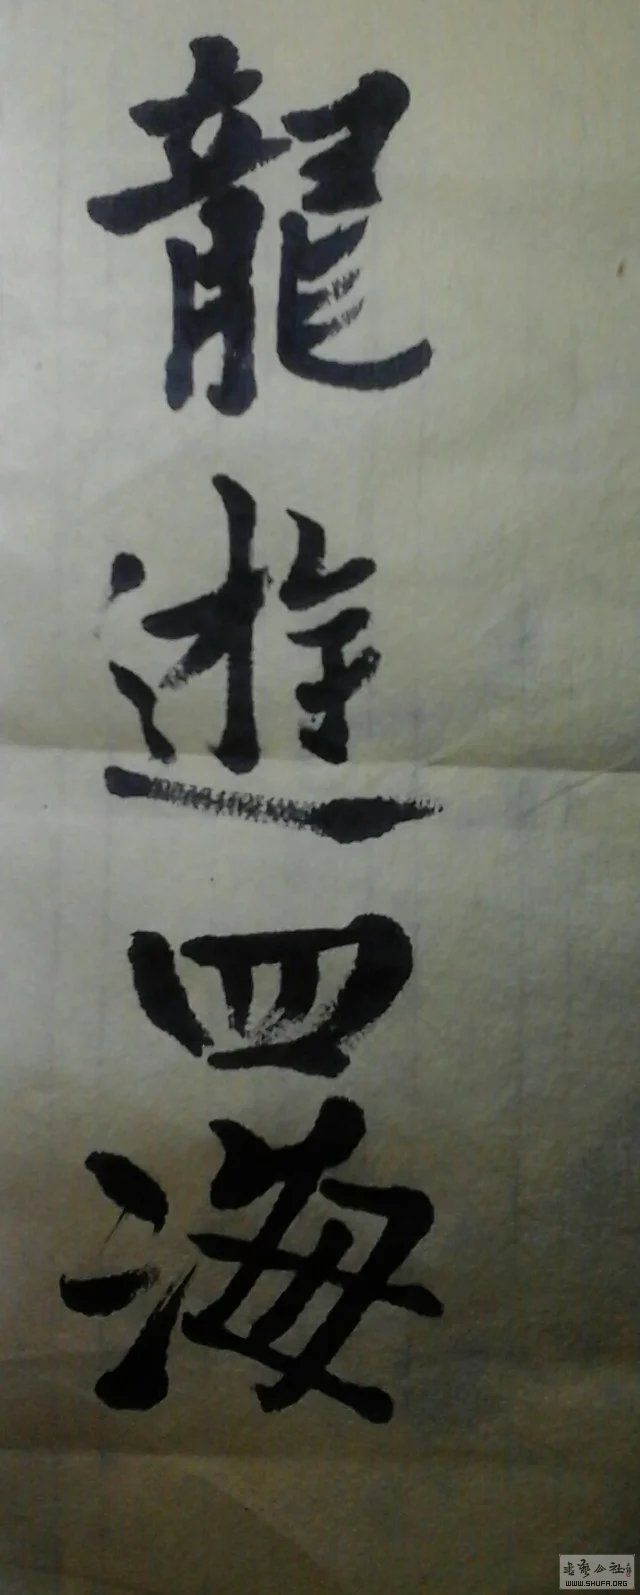 龍遊四海
书艺公社
WWW.SHUFA.ORG